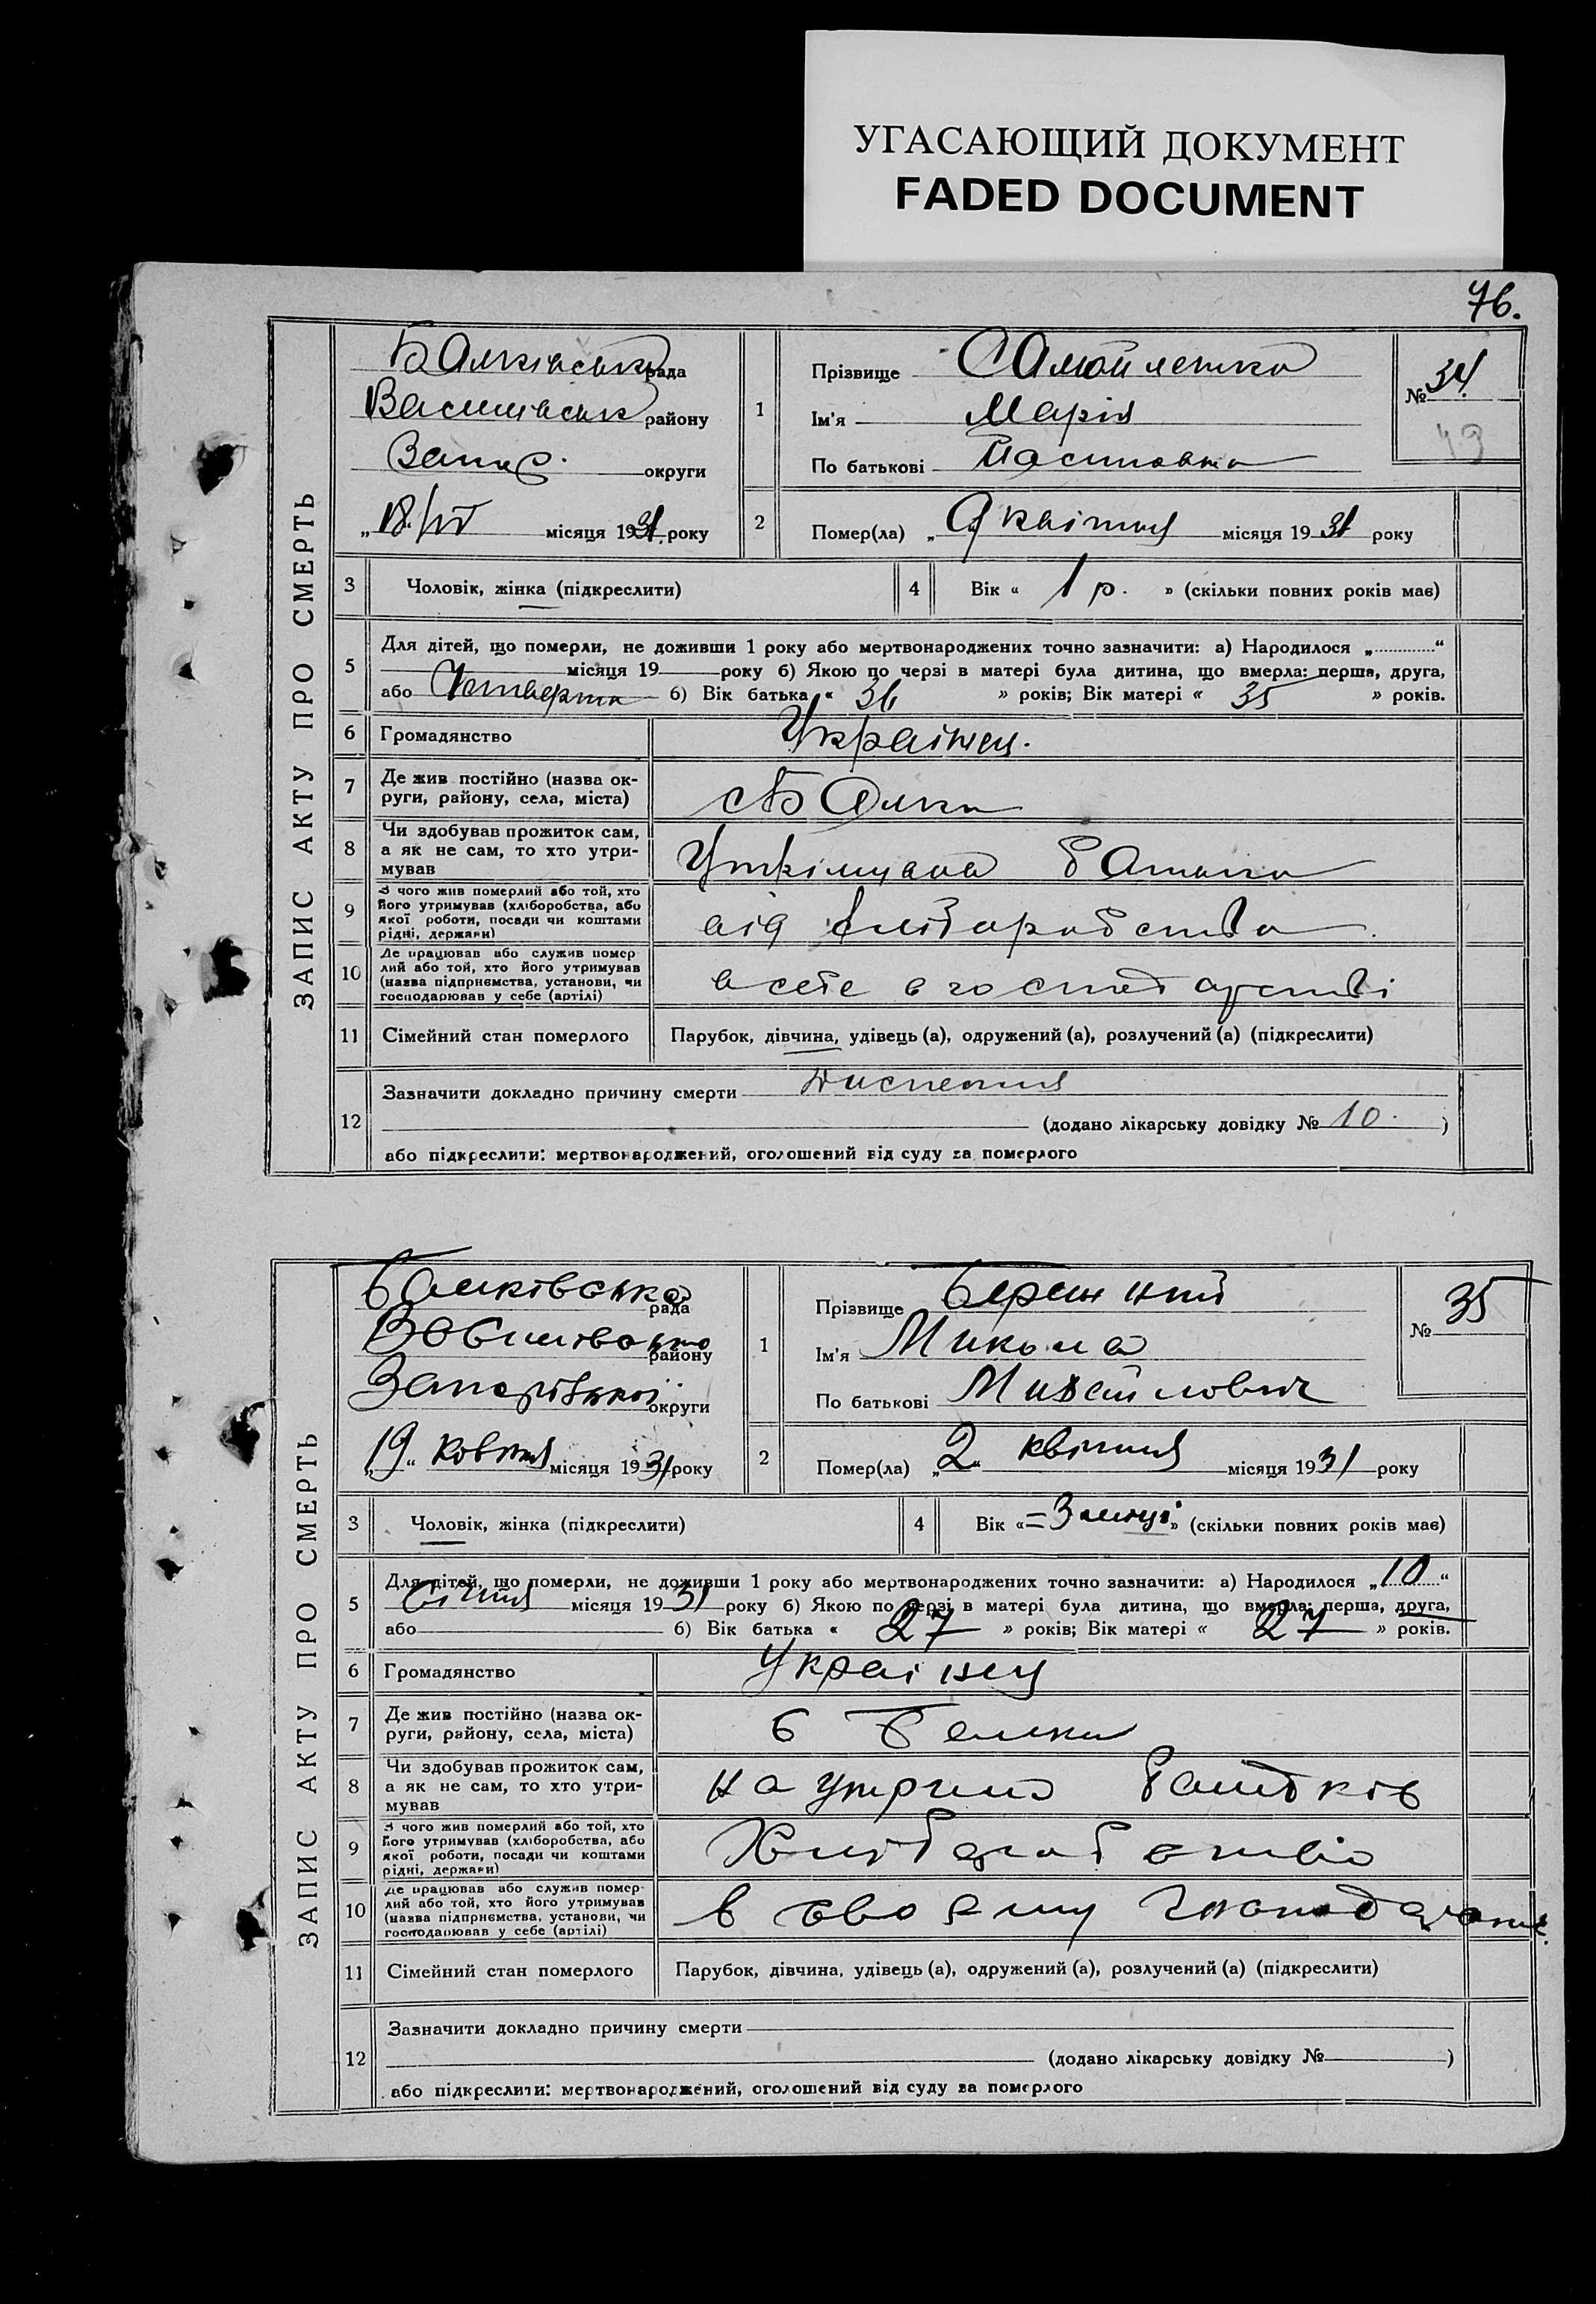 УГАСАЮЩИЙ ДОКУМЕНТ
FADED DOCUMENT
76.
ЗАПИС АКТУ ПРО СМЕРТЬ
Балківська рада
Василівськ району
Запор. округи
„18/IV місяця 1931 року
1
Прізвище Самойленко
Ім'я Марія
По батькові
№ 34
49
2
Помер(ла) „9 квітня місяця 1931 року
3
Чоловік, жінка (підкреслити)
4
Вік « 1 р. » (скільки повних років має)
5
Для дітей, що померли, не доживши 1 року або мертвонароджених точно зазначити: а) Народилося „ “
місяця 19 року б) Якою по черзі в матері була дитина, що вмерла: перша, друга,
або Четверта б) Вік батька « 36 » років; Вік матері « 35 » років.
6
Громадянство Українец.
7
Де жив постійно (назва ок-
руги, району, села, міста)
с Балки
8
Чи здобував прожиток сам,
а як не сам, то хто утри-
мував
батько
9
З чого жив померлий або той, хто
його утримував (хліборобства, або
якої роботи, посади чи коштами
рідні, держави)
від хліборобства
10
Де працював або служив помер-
лий або той, хто його утримував
(назва підприємства, установи, чи
господарював у себе (артілі)
в себе в господарстві
11
Сімейний стан померлого
Парубок, дівчина, удівець (а), одружений (а), розлучений (а) (підкреслити)
12
Зазначити докладно причину смерти Диспепсия
(додано лікарську довідку № 10. )
або підкреслити: мертвонароджений, оголошений від суду за померлого
ЗАПИС АКТУ ПРО СМЕРТЬ
Балківська рада
Василівсько району
Запорізької округи
„19“ Ковтня місяця 1931 року
1
Прізвище Бережний
Ім'я Микола
По батькові Михайлович
№ 35
2
Помер(ла) „2“ квітня місяця 1931 року
3
Чоловік, жінка (підкреслити)
4
Вік «= 3 місяці» (скільки повних років має)
5
Для дітей, що померли, не доживши 1 року або мертвонароджених точно зазначити: а) Народилося „10“
Січня місяця 1931 року б) Якою по черзі в матері була дитина, що вмерла: перша, друга,
або б) Вік батька « 27 » років; Вік матері « 27 » років.
6
Громадянство Українец
7
Де жив постійно (назва ок-
руги, району, села, міста)
с Балки
8
Чи здобував прожиток сам,
а як не сам, то хто утри-
мував
на утрим батьків
9
З чого жив померлий або той, хто
його утримував (хліборобства, або
якої роботи, посади чи коштами
рідні, держави)
Хліборобство
10
Де працював або служив помер-
лий або той, хто його утримував
(назва підприємства, установи, чи
господарював у себе (артілі)
в своєму господарстві
11
Сімейний стан померлого
Парубок, дівчина, удівець (а), одружений (а), розлучений (а) (підкреслити)
12
Зазначити докладно причину смерти
(додано лікарську довідку № )
або підкреслити: мертвонароджений, оголошений від суду за померлого